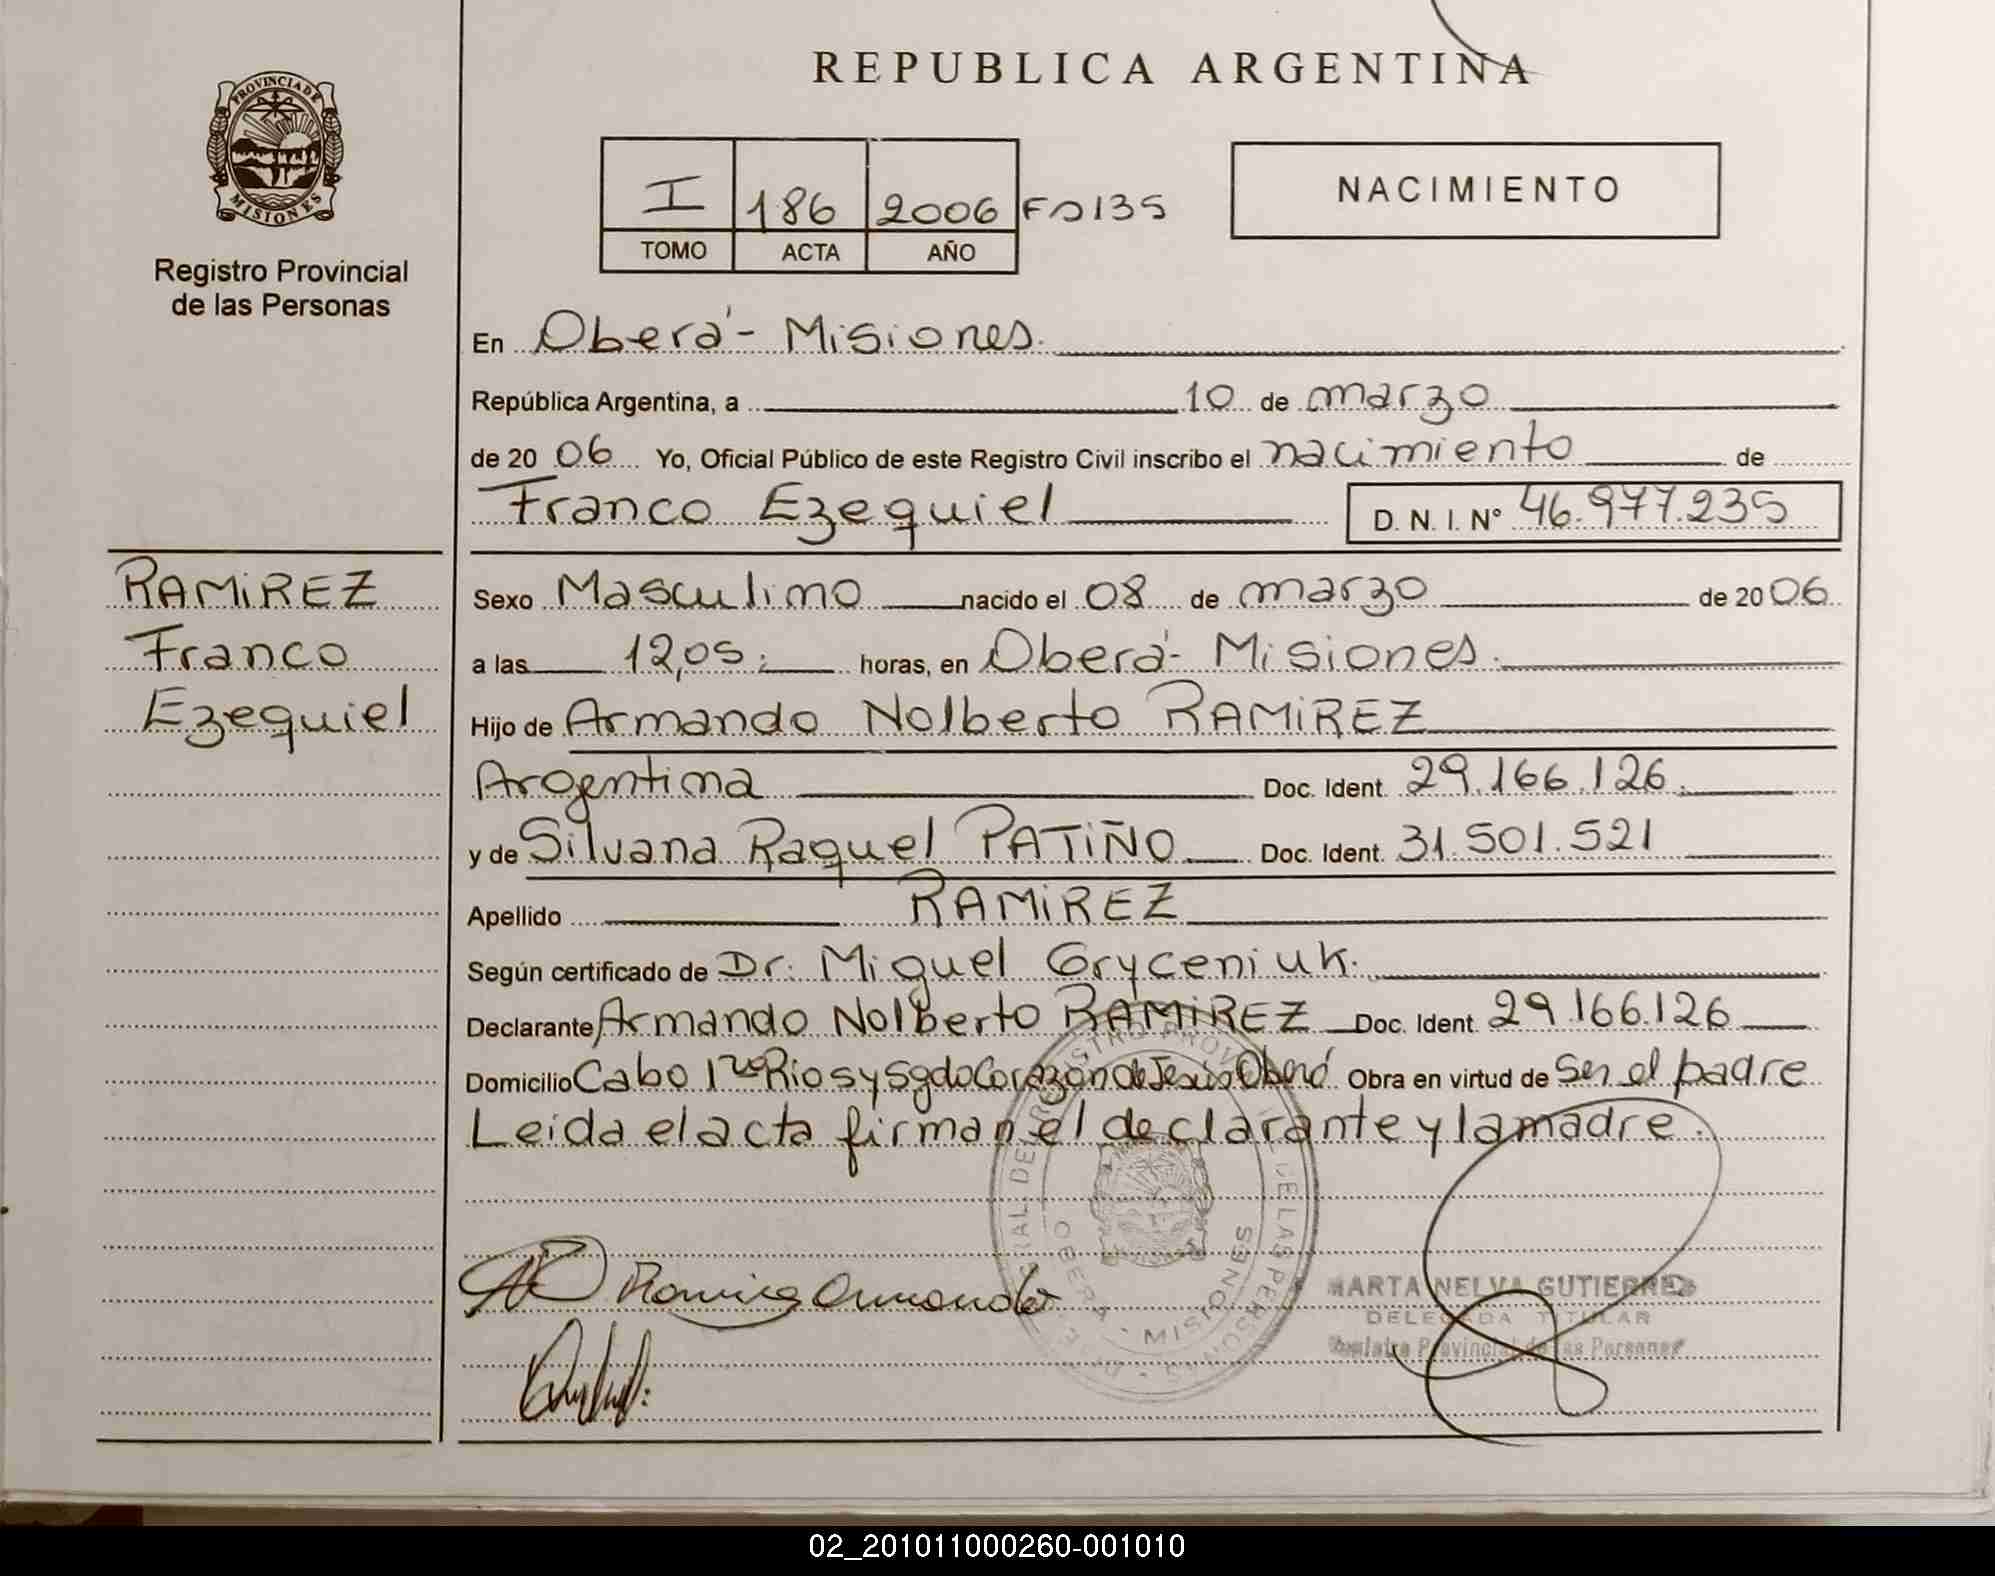 REPUBLICA ARGENTINA
PROVINCIA DE MISIONES
Registro Provincial
de las Personas
I 186 2006 Fº 135
TOMO ACTA AÑO
NACIMIENTO
En Oberá - Misiones.
República Argentina, a 10 de marzo
de 20 06 Yo, Oficial Público de este Registro Civil inscribo el nacimiento de
Franco Ezequiel D. N. I. Nº 46.977.235
RAMiREZ
Franco
Ezequiel
Sexo Masculino nacido el 08 de marzo de 20 06
a las 12,05; horas, en Oberá - Misiones.
Hijo de Armando Nolberto RAMiREZ
Argentina Doc. Ident. 29.166.126.
y de Silvana Raquel PATiÑO Doc. Ident. 31.501.521
Apellido RAMiREZ
Según certificado de Dr. Miguel Gryceniuk.
Declarante Armando Nolberto RAMiREZ Doc. Ident. 29.166.126
Domicilio Cabo 1ro Rios y Sgdo Corazón de Jesús Oberá Obra en virtud de ser el padre
Leida el acta firman el declarante y la madre.
Ramirez Armando
OBERA - MISIONES
MARTA NELVA GUTIERREZ
DELEGADA TITULAR
Registro Provincial de las Personas
02_201011000260-001010